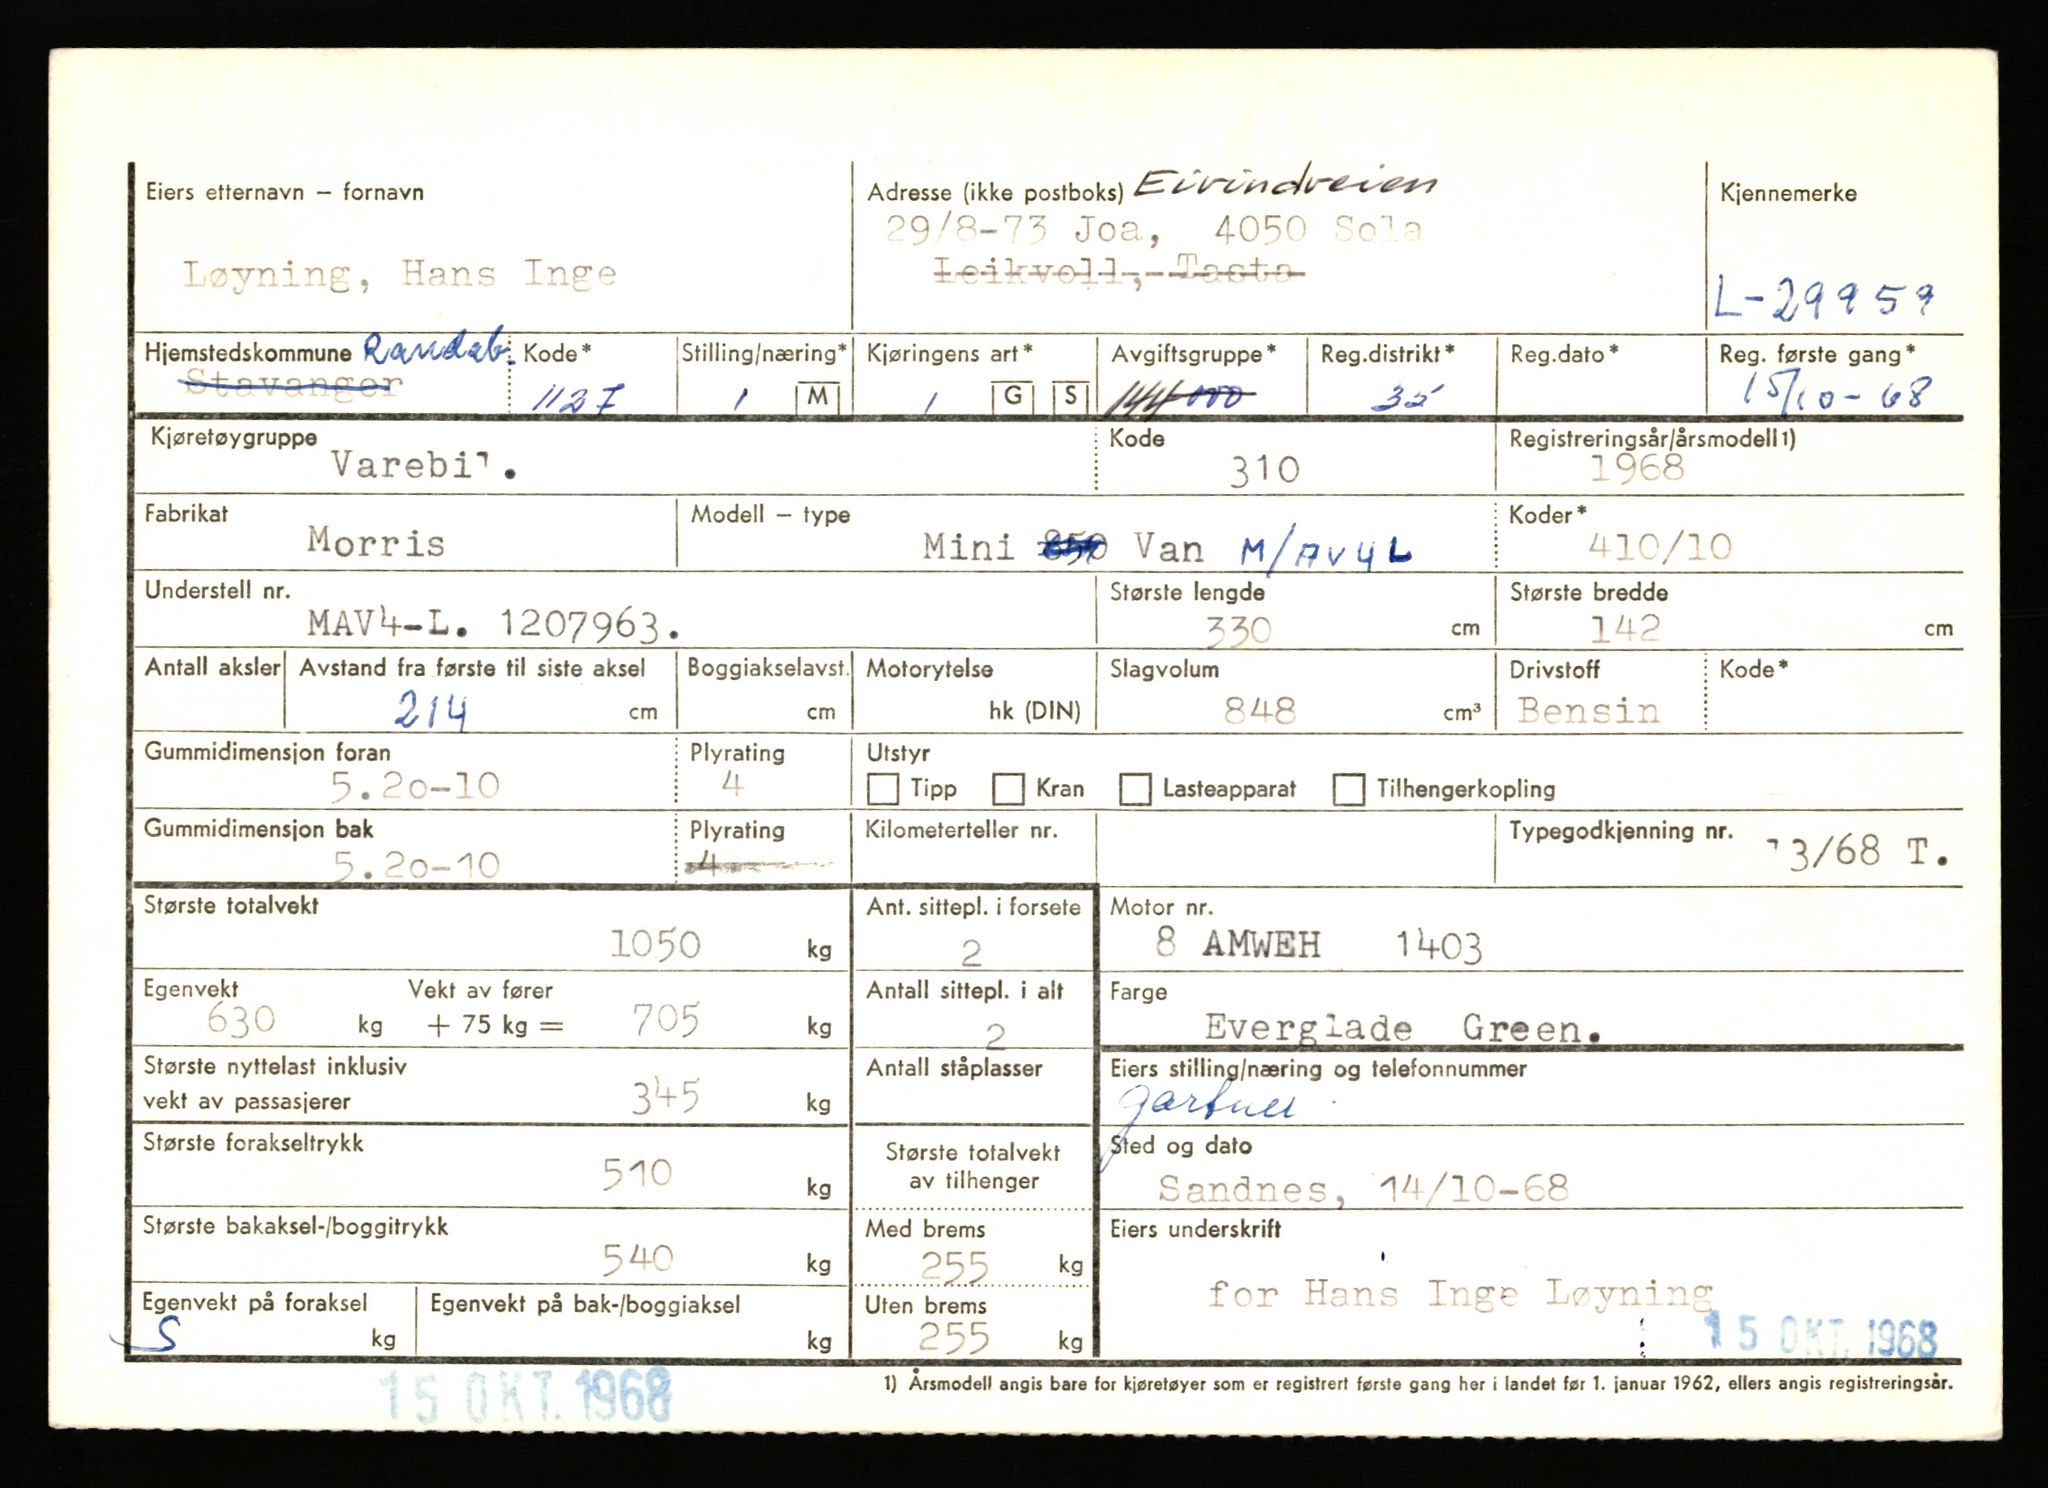 Eiers etternavn – fornavn
Løyning, Hans Inge
Adresse (ikke postboks) Eivindveien
29/8-73 Joa, 4050 Sola
Leikvoll, Tasta
Kjennemerke
L-29959
Hjemstedskommune Randab.
Stavanger
Kode*
1127
Stilling/næring*
1 M
Kjøringens art*
1 G S
Avgiftsgruppe*
144 000
Reg.distrikt*
35
Reg.dato*
Reg. første gang*
15/10-68
Kjøretøygruppe
Varebil.
Kode
310
Registreringsår/årsmodell 1)
1968
Fabrikat
Morris
Modell – type
Mini 850 Van M/AV4L
Koder*
410/10
Understell nr.
MAV4-L. 1207963.
Største lengde
330 cm
Største bredde
142 cm
Antall aksler
Avstand fra første til siste aksel
214 cm
Boggiakselavst.
cm
Motorytelse
hk (DIN)
Slagvolum
848 cm³
Drivstoff
Bensin
Kode*
Gummidimensjon foran
5.20-10
Plyrating
4
Utstyr
Tipp Kran Lasteapparat Tilhengerkopling
Gummidimensjon bak
5.20-10
Plyrating
4
Kilometerteller nr.
Typegodkjenning nr.
13/68 T.
Største totalvekt
1050 kg
Ant. sittepl. i forsete
2
Motor nr.
8 AMWEH 1403
Egenvekt
630 kg
Vekt av fører
+ 75 kg = 705 kg
Antall sittepl. i alt
2
Farge
Everglade Green.
Største nyttelast inklusiv
vekt av passasjerer
345 kg
Antall ståplasser
Eiers stilling/næring og telefonnummer
gartner
Største forakseltrykk
510 kg
Største totalvekt
av tilhenger
Sted og dato
Sandnes, 14/10-68
Største bakaksel-/boggitrykk
540 kg
Med brems
255 kg
Eiers underskrift
for Hans Inge Løyning
Egenvekt på foraksel
S kg
Egenvekt på bak-/boggiaksel
kg
Uten brems
255 kg
15 OKT. 1968
15 OKT. 1968
1) Årsmodell angis bare for kjøretøyer som er registrert første gang her i landet før 1. januar 1962, ellers angis registreringsår.